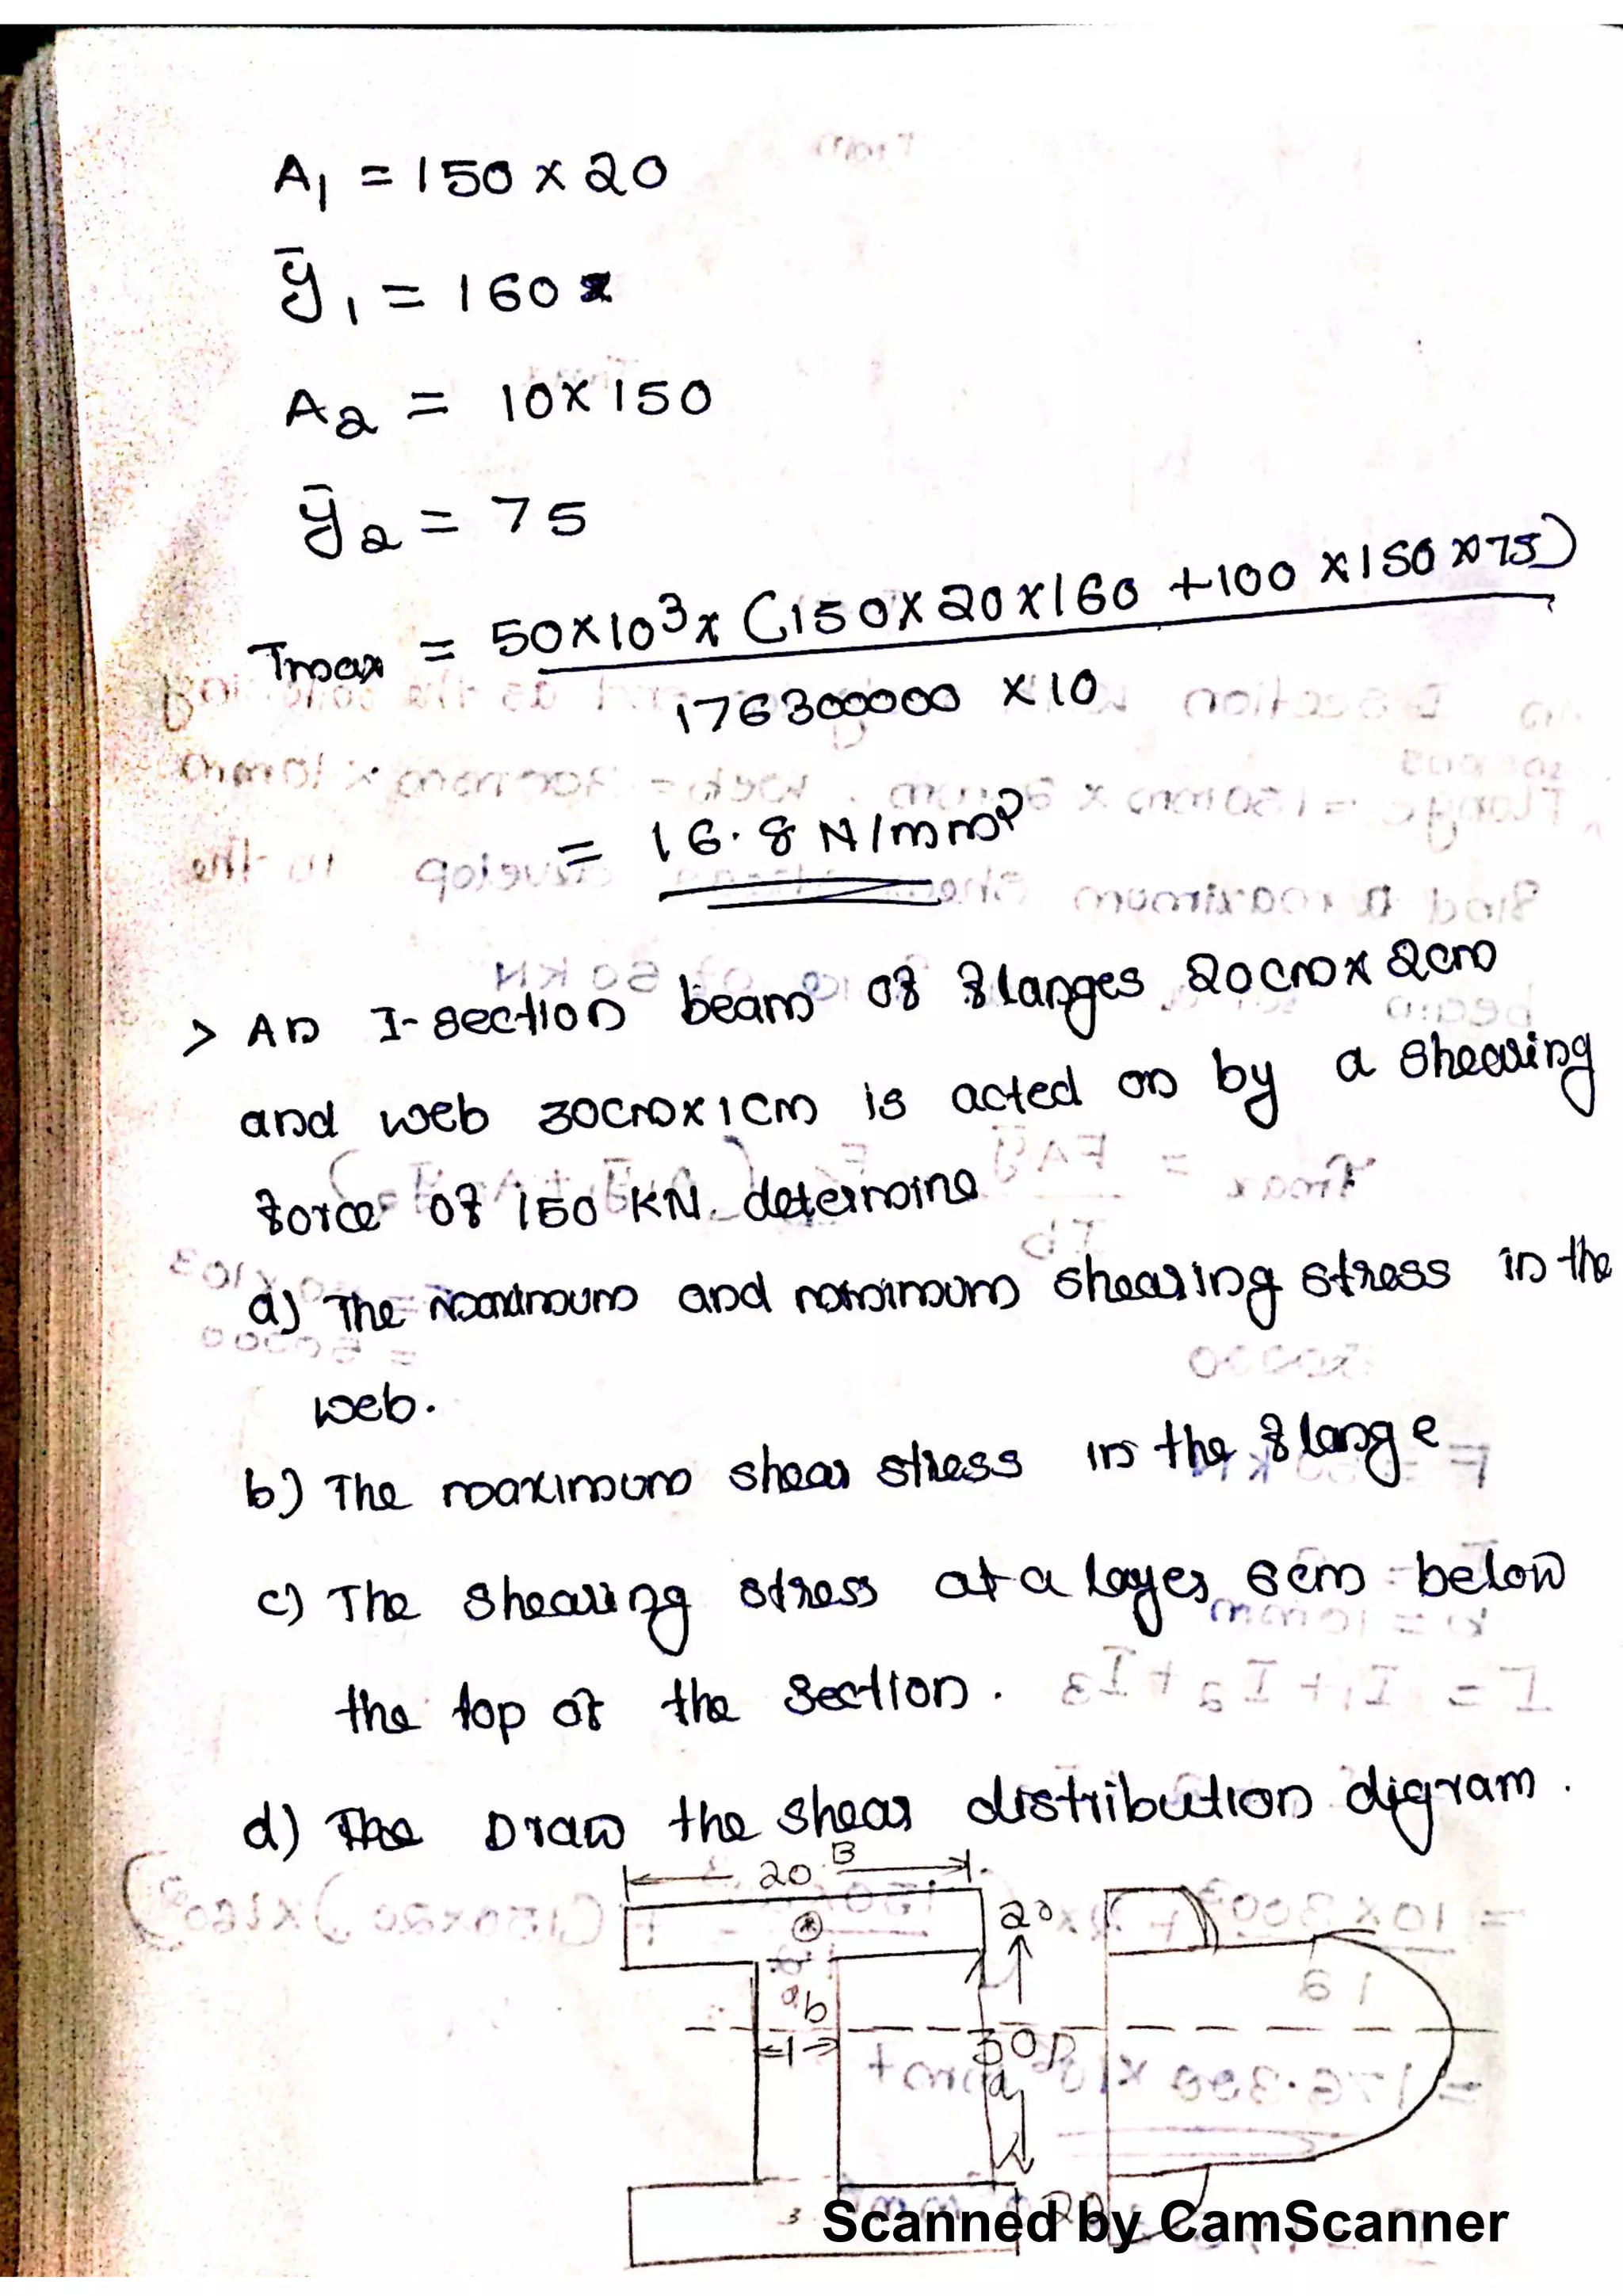 A1 = 150 x 20
ȳ1 = 160
A2 = 10x150
ȳ2 = 75
Tmax = 50x10³x (150x20x160 +100 x150 x75)
176300000 x10
= 16.8 N/mm²
> An I-section beam of flanges 20cmx2cm
and web 30cmx1cm is acted on by a shearing
force of 150 KN. determine
a) The maximum and minimum shearing stress in the
web.
b) The maximum shear stress in the flange
c) The shearing stress at a layer 6cm below
the top of the section.
d) The Draw the shear distribution digram.
20 B
20
b
1
30
20
3
Scanned by CamScanner